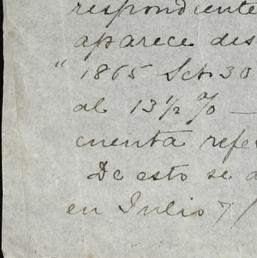 respondiente
aparece des
" 1865 Set. 30
al 13½ % —
cuenta refe
De esto se a
en Julio 7/